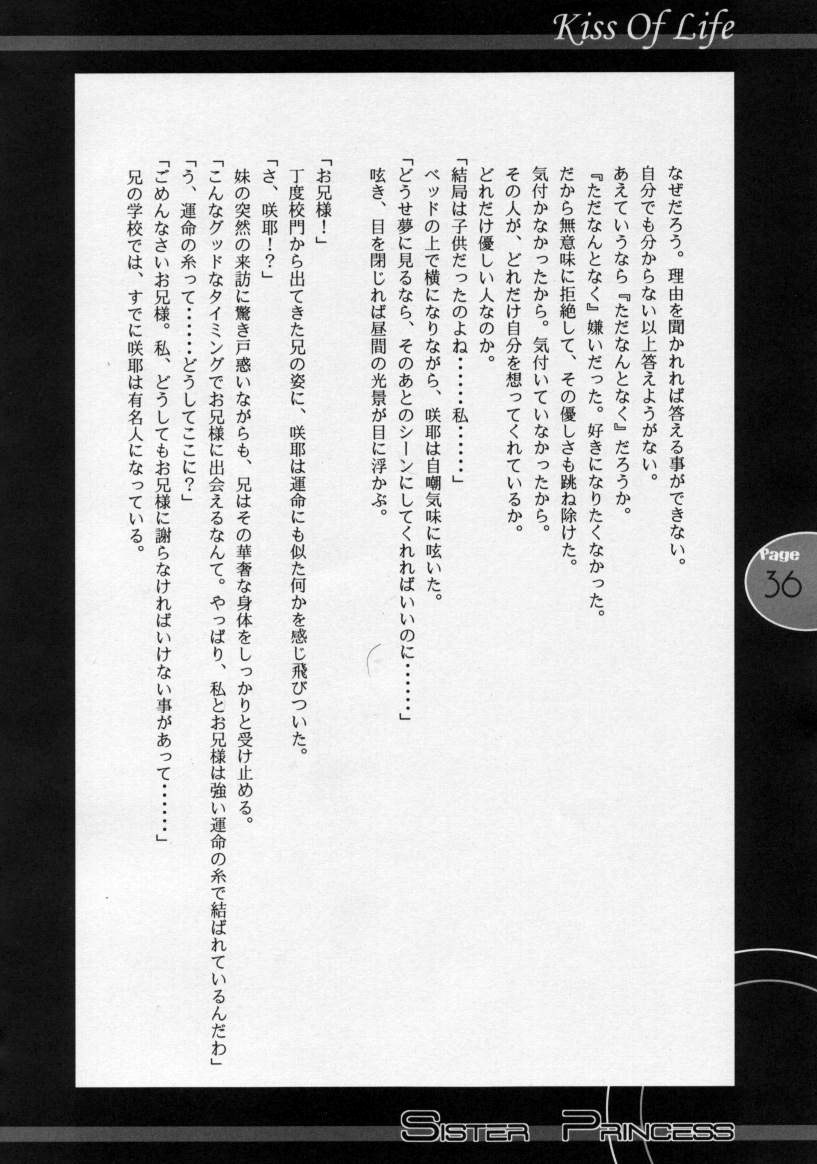 Kiss Of Life
なぜだろう。理由を聞かれれば答える事ができない。
自分でも分からない以上答えようがない。
あえていうなら『ただなんとなく』だろうか。
『ただなんとなく』嫌いだった。好きになりたくなかった。
だから無意味に拒絶して、その優しさも跳ね除けた。
気付かなかったから。気付いていなかったから。
その人が、どれだけ自分を想ってくれているか。
どれだけ優しい人なのか。
「結局は子供だったのよね・・・・・・私・・・・・・」
ベッドの上で横になりながら、咲耶は自嘲気味に呟いた。
「どうせ夢に見るなら、そのあとのシーンにしてくれればいいのに・・・・・・」
呟き、目を閉じれば昼間の光景が目に浮かぶ。
「お兄様！」
丁度校門から出てきた兄の姿に、咲耶は運命にも似た何かを感じ飛びついた。
「さ、咲耶！？」
妹の突然の来訪に驚き戸惑いながらも、兄はその華奢な身体をしっかりと受け止める。
「こんなグッドなタイミングでお兄様に出会えるなんて。やっぱり、私とお兄様は強い運命の糸で結ばれているんだわ」
「う、運命の糸って・・・・・・どうしてここに？」
「ごめんなさいお兄様。私、どうしてもお兄様に謝らなければいけない事があって・・・・・・」
兄の学校では、すでに咲耶は有名人になっている。
Page
36
SISTER PRINCESS